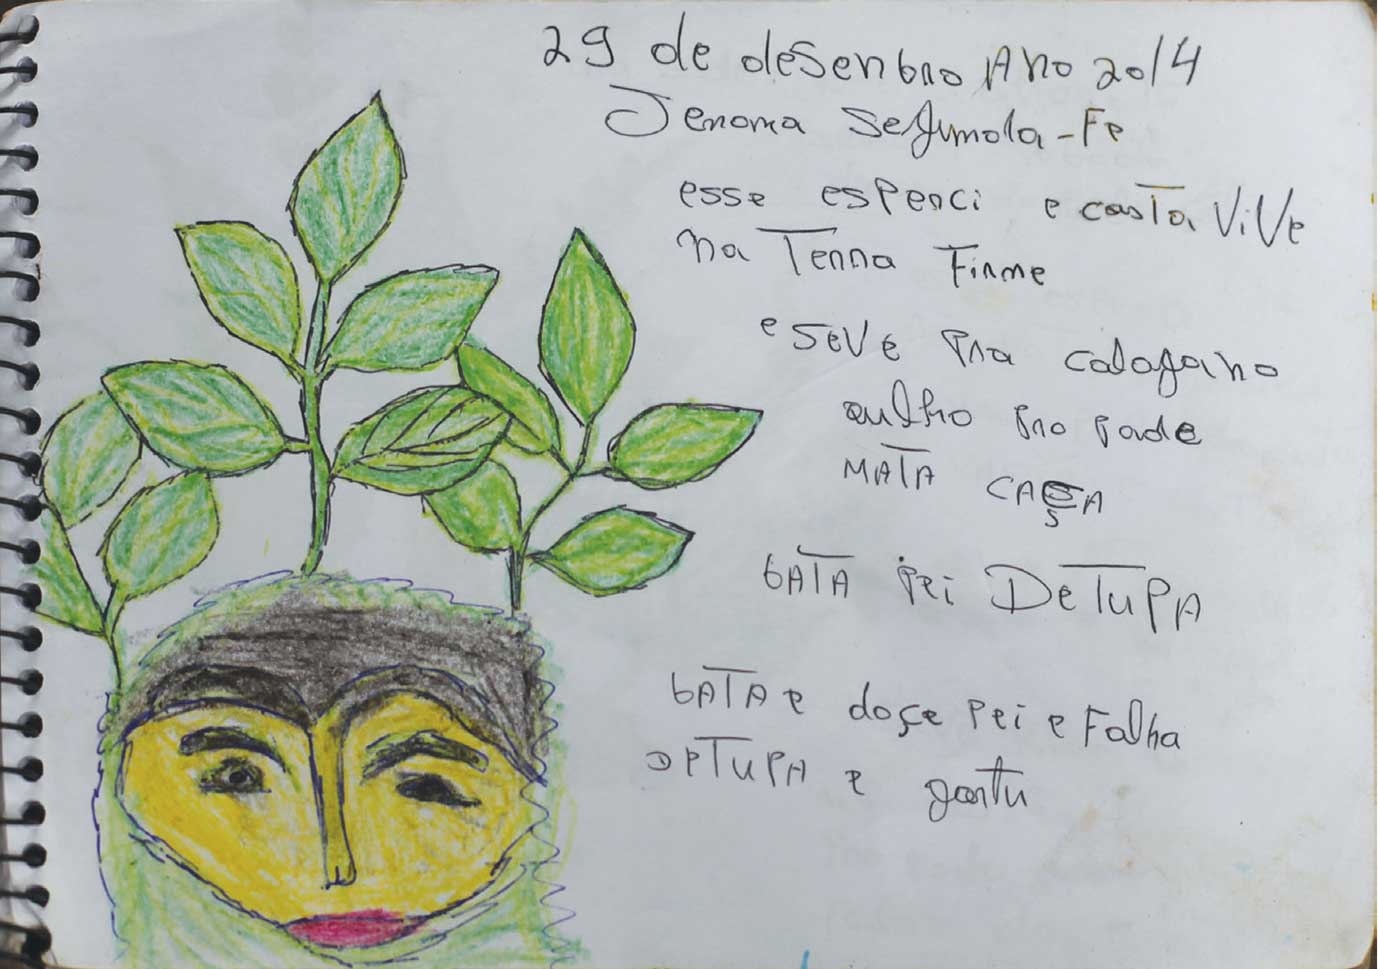 29 de desenbro Ano 2014
Jeroma Segunda-Fe
esse esperci e casta ViVe
na Terra Firme
e seve pra calagaho
aulho pro pode
MATA CASA
BATA Pei DeTUPA
BATA e doçe Pei e Falha
DeTUPA e gartu